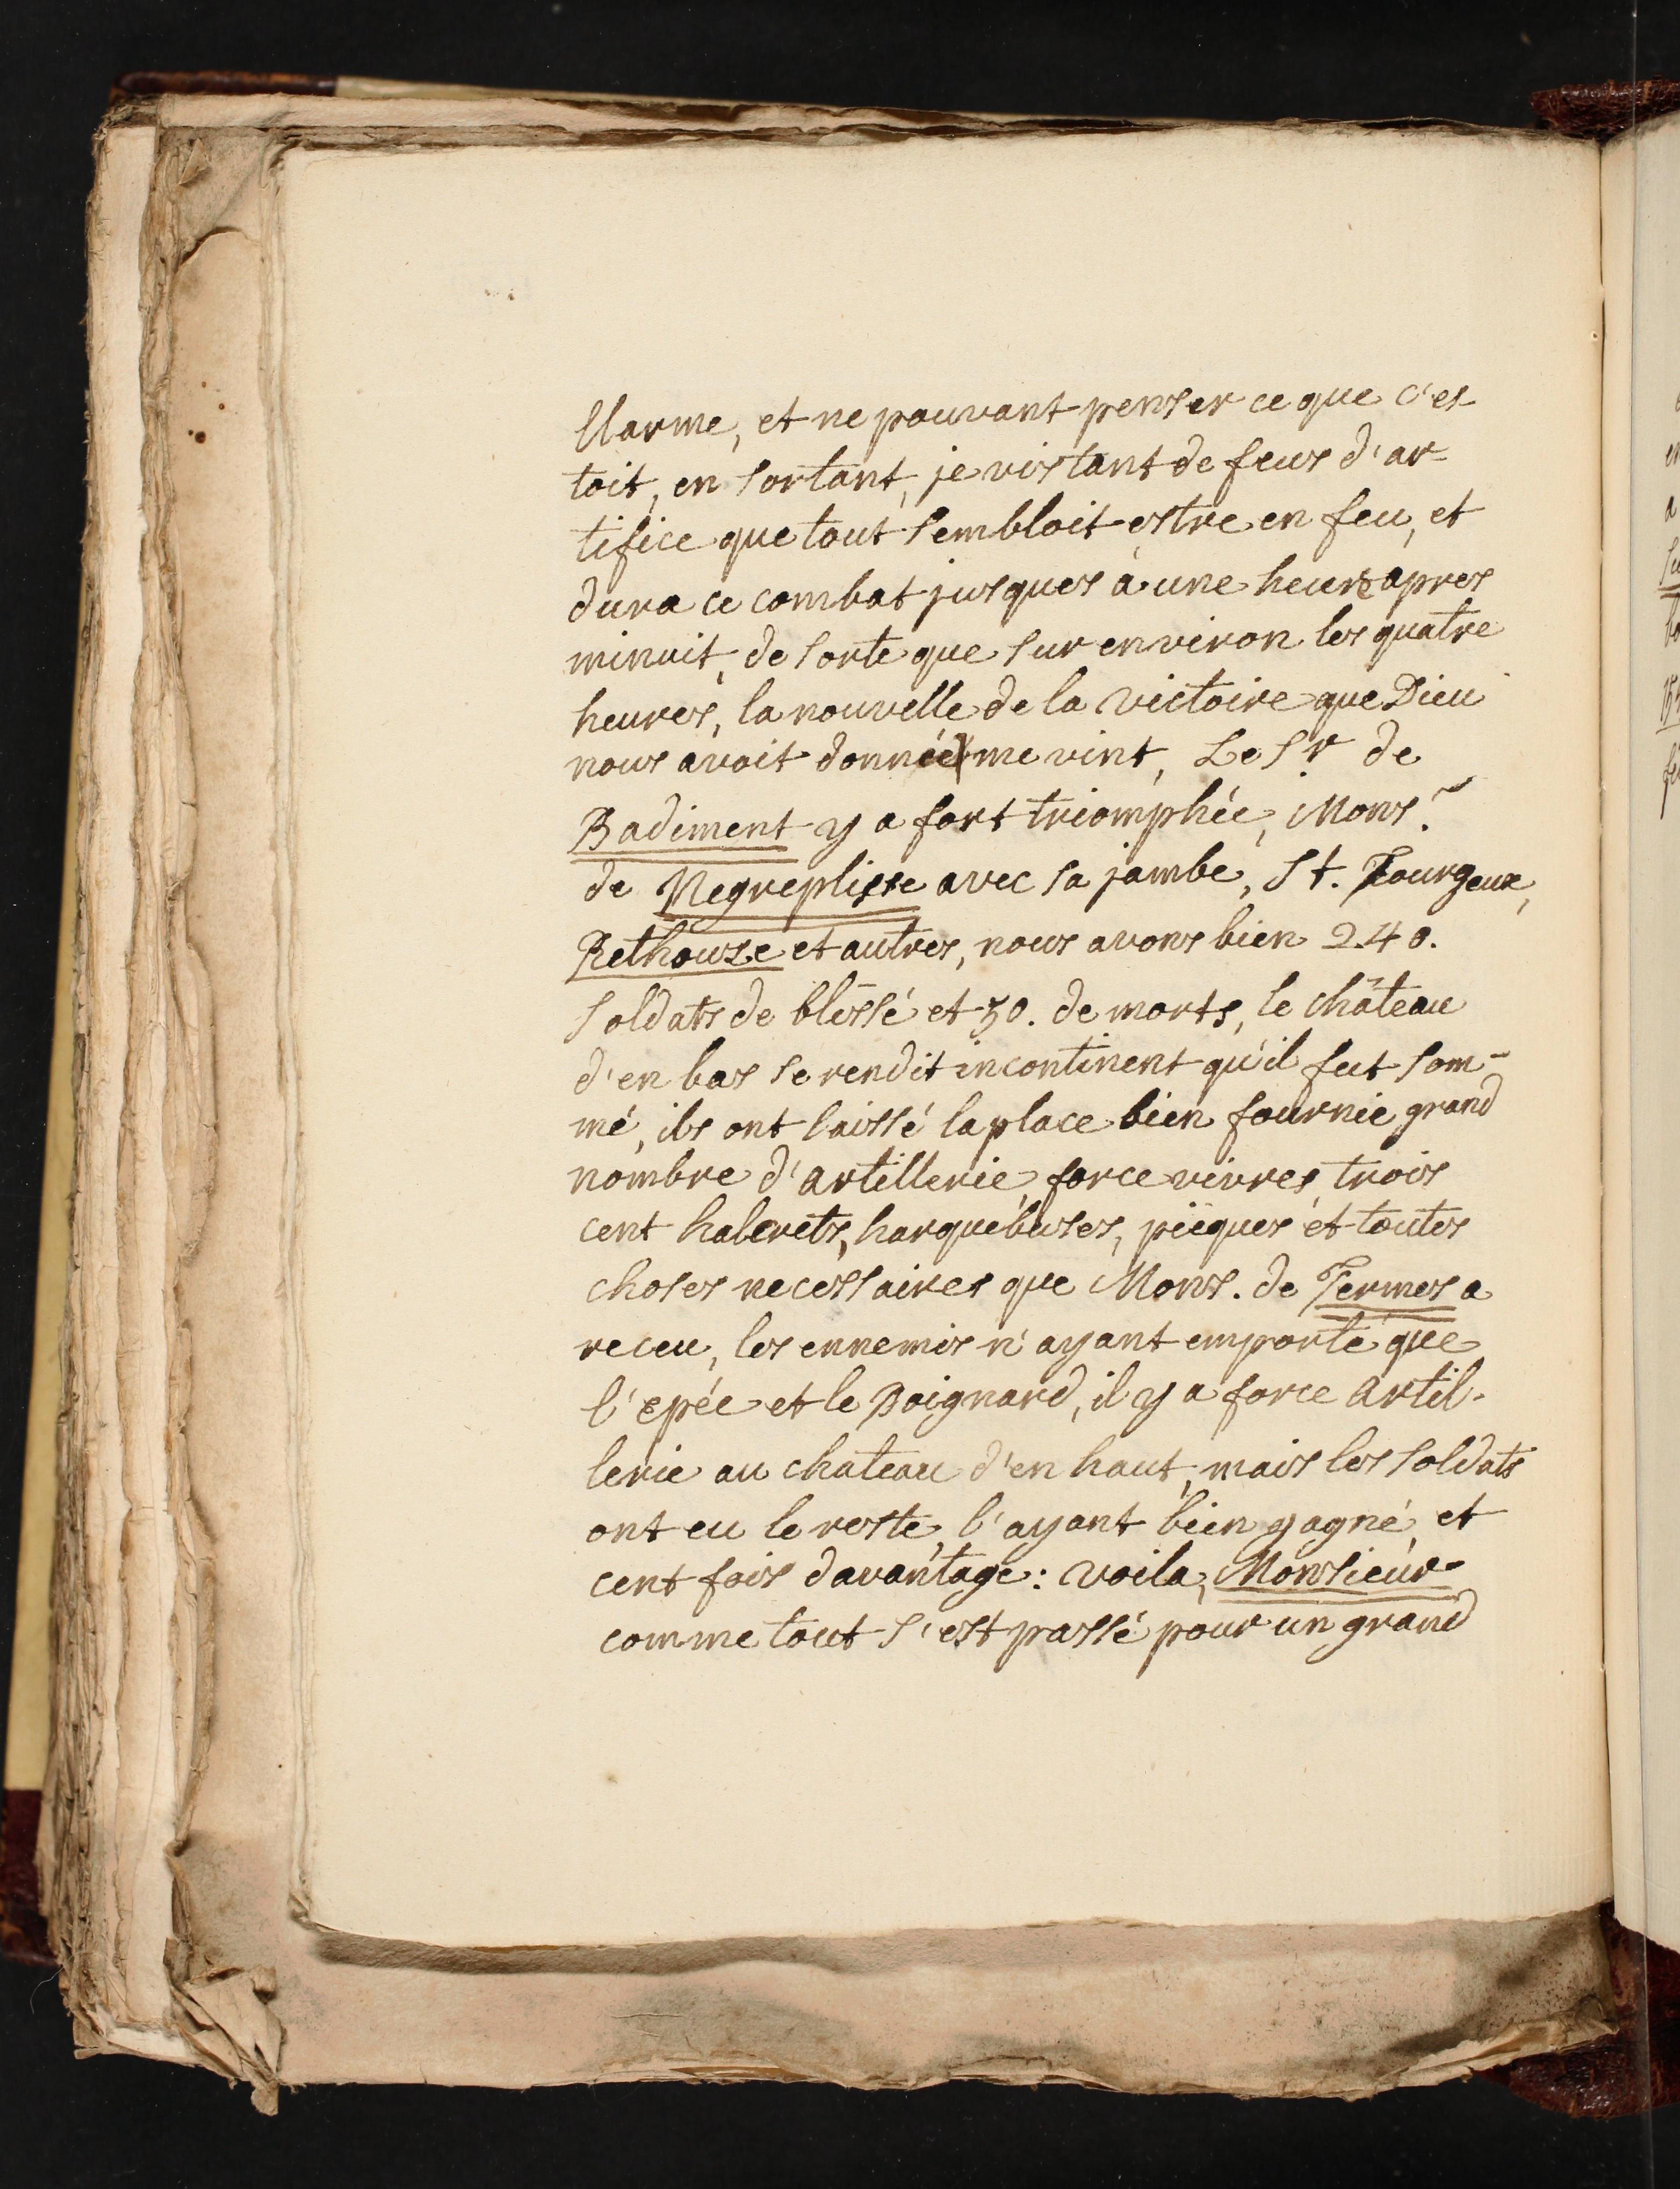 Uarme, et ne pouvant penser ce que c'es-
toit, en sortant, je vis tant de feus d'ar-
tifice que tout sembloit estre en feu, et
dura ce combat jusques à une heure apres
minuit, de sorte que sur environ les quatre
heures, la nouvelle de la victoire que Dieu
nous avoit donnée me vint, Le Sr. de
Badiment y a fort triomphée, Monsr.
de Negreplisse avec sa jambe, St. Fourgeux,
Rethouze et autres, nous avons bien 240.
soldats de blessé et 50. de morts, le château
d'en bas se rendit incontinent qu'il fut som-
mé, ils ont laissé la place bien fournie, grand
nombre d'artillerie, force vivres, trois
cent halcrets, harquebuses, picques et toutes
choses necessaires que Mons. de Termes a
receu, les ennemis n'ayant emporté que
l'epée et le Poignard, il y a force artil-
lerie au chateau d'en haut, mais les soldats
ont eu le reste, l'ayant bien gagné, et
cent fois davantage: voila, Monsieur
comme tout s'est passé pour un grand